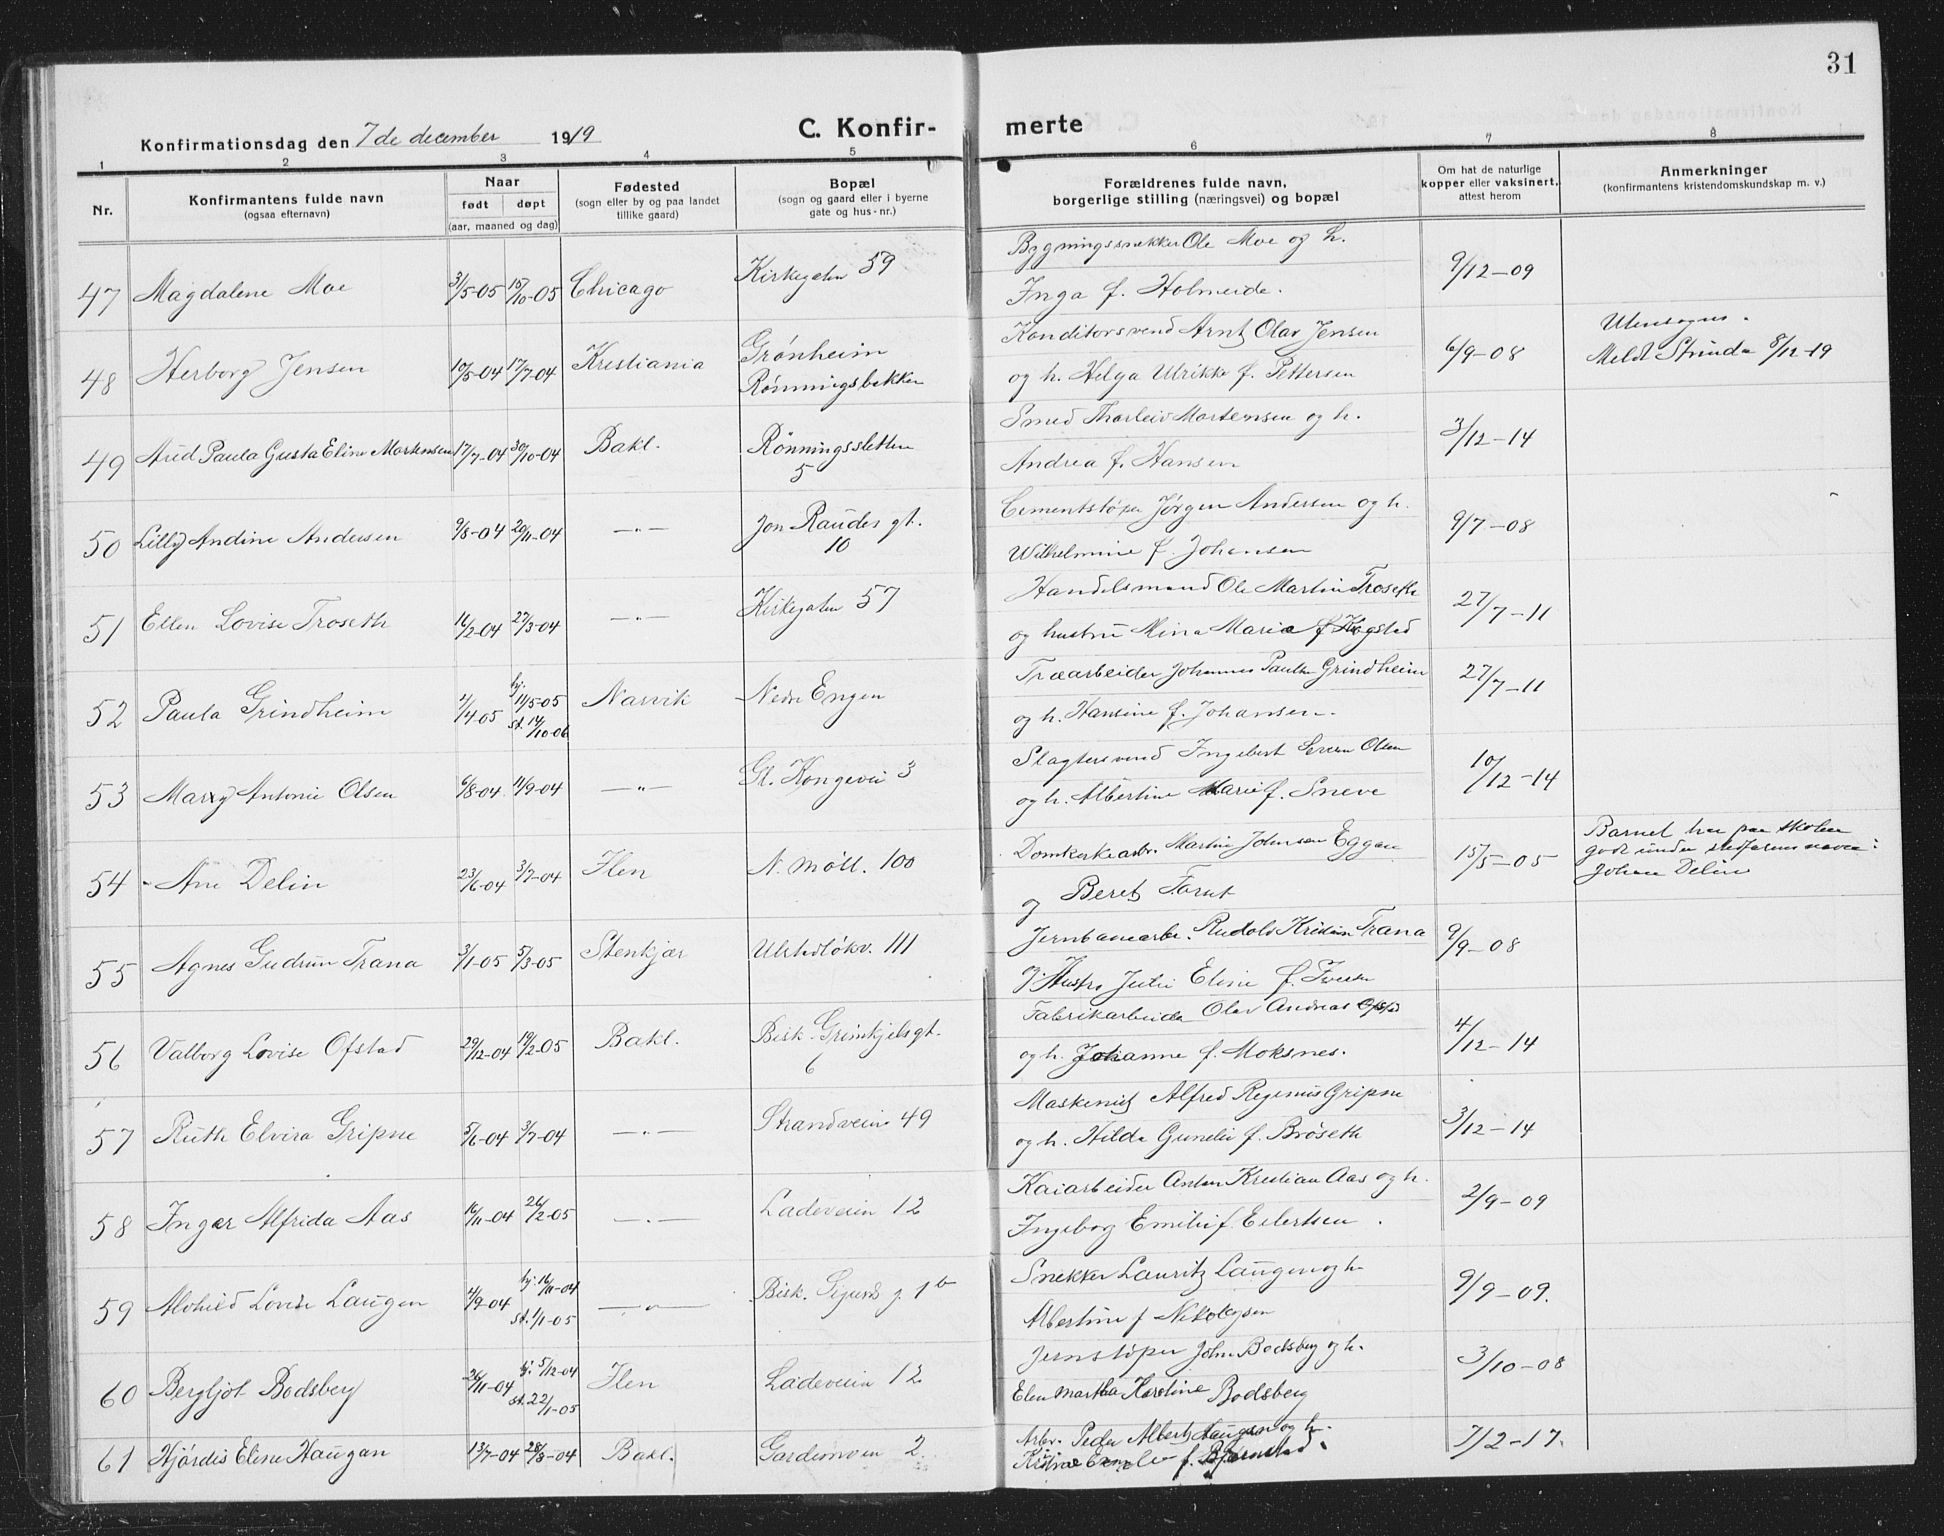 31
Konfirmationsdag den 7de december 1919
C. Konfir- merte
1 2 3 4 5 6 7 8
Nr.
Konfirmantens fulde navn
(ogsaa efternavn)
Naar
født døpt
(aar, maaned og dag)
Fødested
(sogn eller by og paa landet
tillike gaard)
Bopæl
(sogn og gaard eller i byerne
gate og hus-nr.)
Forældrenes fulde navn,
borgerlige stilling (næringsvei) og bopæl
Om hat de naturlige
kopper eller vaksinert,
attest herom
Anmerkninger
(konfirmantens kristendomskundskap m. v.)
47 Magdalene Moe 31/5-05 15/10-05 Chicago Kirkegaten 59
Bygningssnekker Ole Moe og h.
Inga f. Holmeide.
9/12-09
48 Herborg Jensen 10/5-04 17/7-04 Kristiania Grønheim
Rønningsbakken
Konditorsvend Arnt Olav Jensen
og h. Helga Ulrikke f. Pettersen
6/9-08
Utensogns.
Meldt Strinda 8/12-19
49 Aud Paula Gusta Eline Mortensen 17/7-04 30/10-04 Bakl. Rønningsletten
5
Smed Thorleiv Mortensen og h.
Andrea f. Hansen
3/12-14
50 Lilly Andine Andersen 9/8-04 20/11-04 —„— Jon Raudes gt.
10
Cementstøper Jørgen Andersen og h.
Wilhelmine f. Johansen
9/7-08
51 Ellen Lovise Troseth 16/2-04 27/3-04 —„— Kirkegaten 57
Handelsmand Ole Martin Troseth
og hustru Mina Marie f.
27/7-11
52 Paula Grindheim 4/4-05 hj. 11/5-05
st. 14/10-06 Narvik Nedre Engen
Træarbeider Johannes Paulsen Grindheim
og h. Hansine f. Johansen.
27/7-11
53 Mary Antonie Olsen 6/8-04 11/9-04 —„— Gl. Kongevei 3
Slagtersvend Ingebert Severin Olsen
og h. Albertine Marie f. Sneve
10/12-14
54 Ane Delin 23/6-04 3/7-04 Ilen N. Møll. 100
Domkirkearb. Martin Johnsen Eggan
og Beret
15/5-05
Barnet har paa skolen
gode under navn:
Johan Delin
55 Agnes Gudrun Trana 3/1-05 5/3-05 Stenkjær Ulstadløkv. 111
Jernbanearbr. Rudolv Kristian Trana
og Hustru Julie Eline f.
9/9-08
56 Valborg Lovise Ofstad 29/12-04 19/2-05 Bakl. Bisk. Grimkjelsgt.
6
Fabrikarbeider Olav Andreas Ofstad
og h. Johanne f. Moksnes.
4/12-14
57 Ruth Elvira Gripne 5/6-04 3/7-04 —„— Strandveien 49
Maskinist Alfred Reginius Gripne
og h. Hilda Gunelie f. Brøseth
3/12-14
58 Inger Alfrida Aas 16/11-04 26/2-05 —„— Ladeveien 12
Kaiarbeider Anton Kristian Aas og h.
Ingeborg Emilie f. Eilertsen.
2/9-09
59 Alvhild Lovise Laugen 4/9-04 hj. 16/11-04
st. 1/1-05 —„— Bisk. Sigurds g. 1b
Snekker Lauritz Laugen og h.
Albertine f. Nikolaysen
9/9-09.
60 Bergljot Bodsberg 26/11-04 hj. 5/12-04
st. 22/1-05 Ilen Ladeveien 12
Jernstøper John Bodsberg og h.
Elen Martha Karoline Bodsberg
3/10-08
61 Hjørdis Elene Haugan 13/7-04 28/8-04 Bakl. Gardemoen 2
Arbr. Peder Albert Haugan og h.
f. Bjørnstad.
7/2-17.